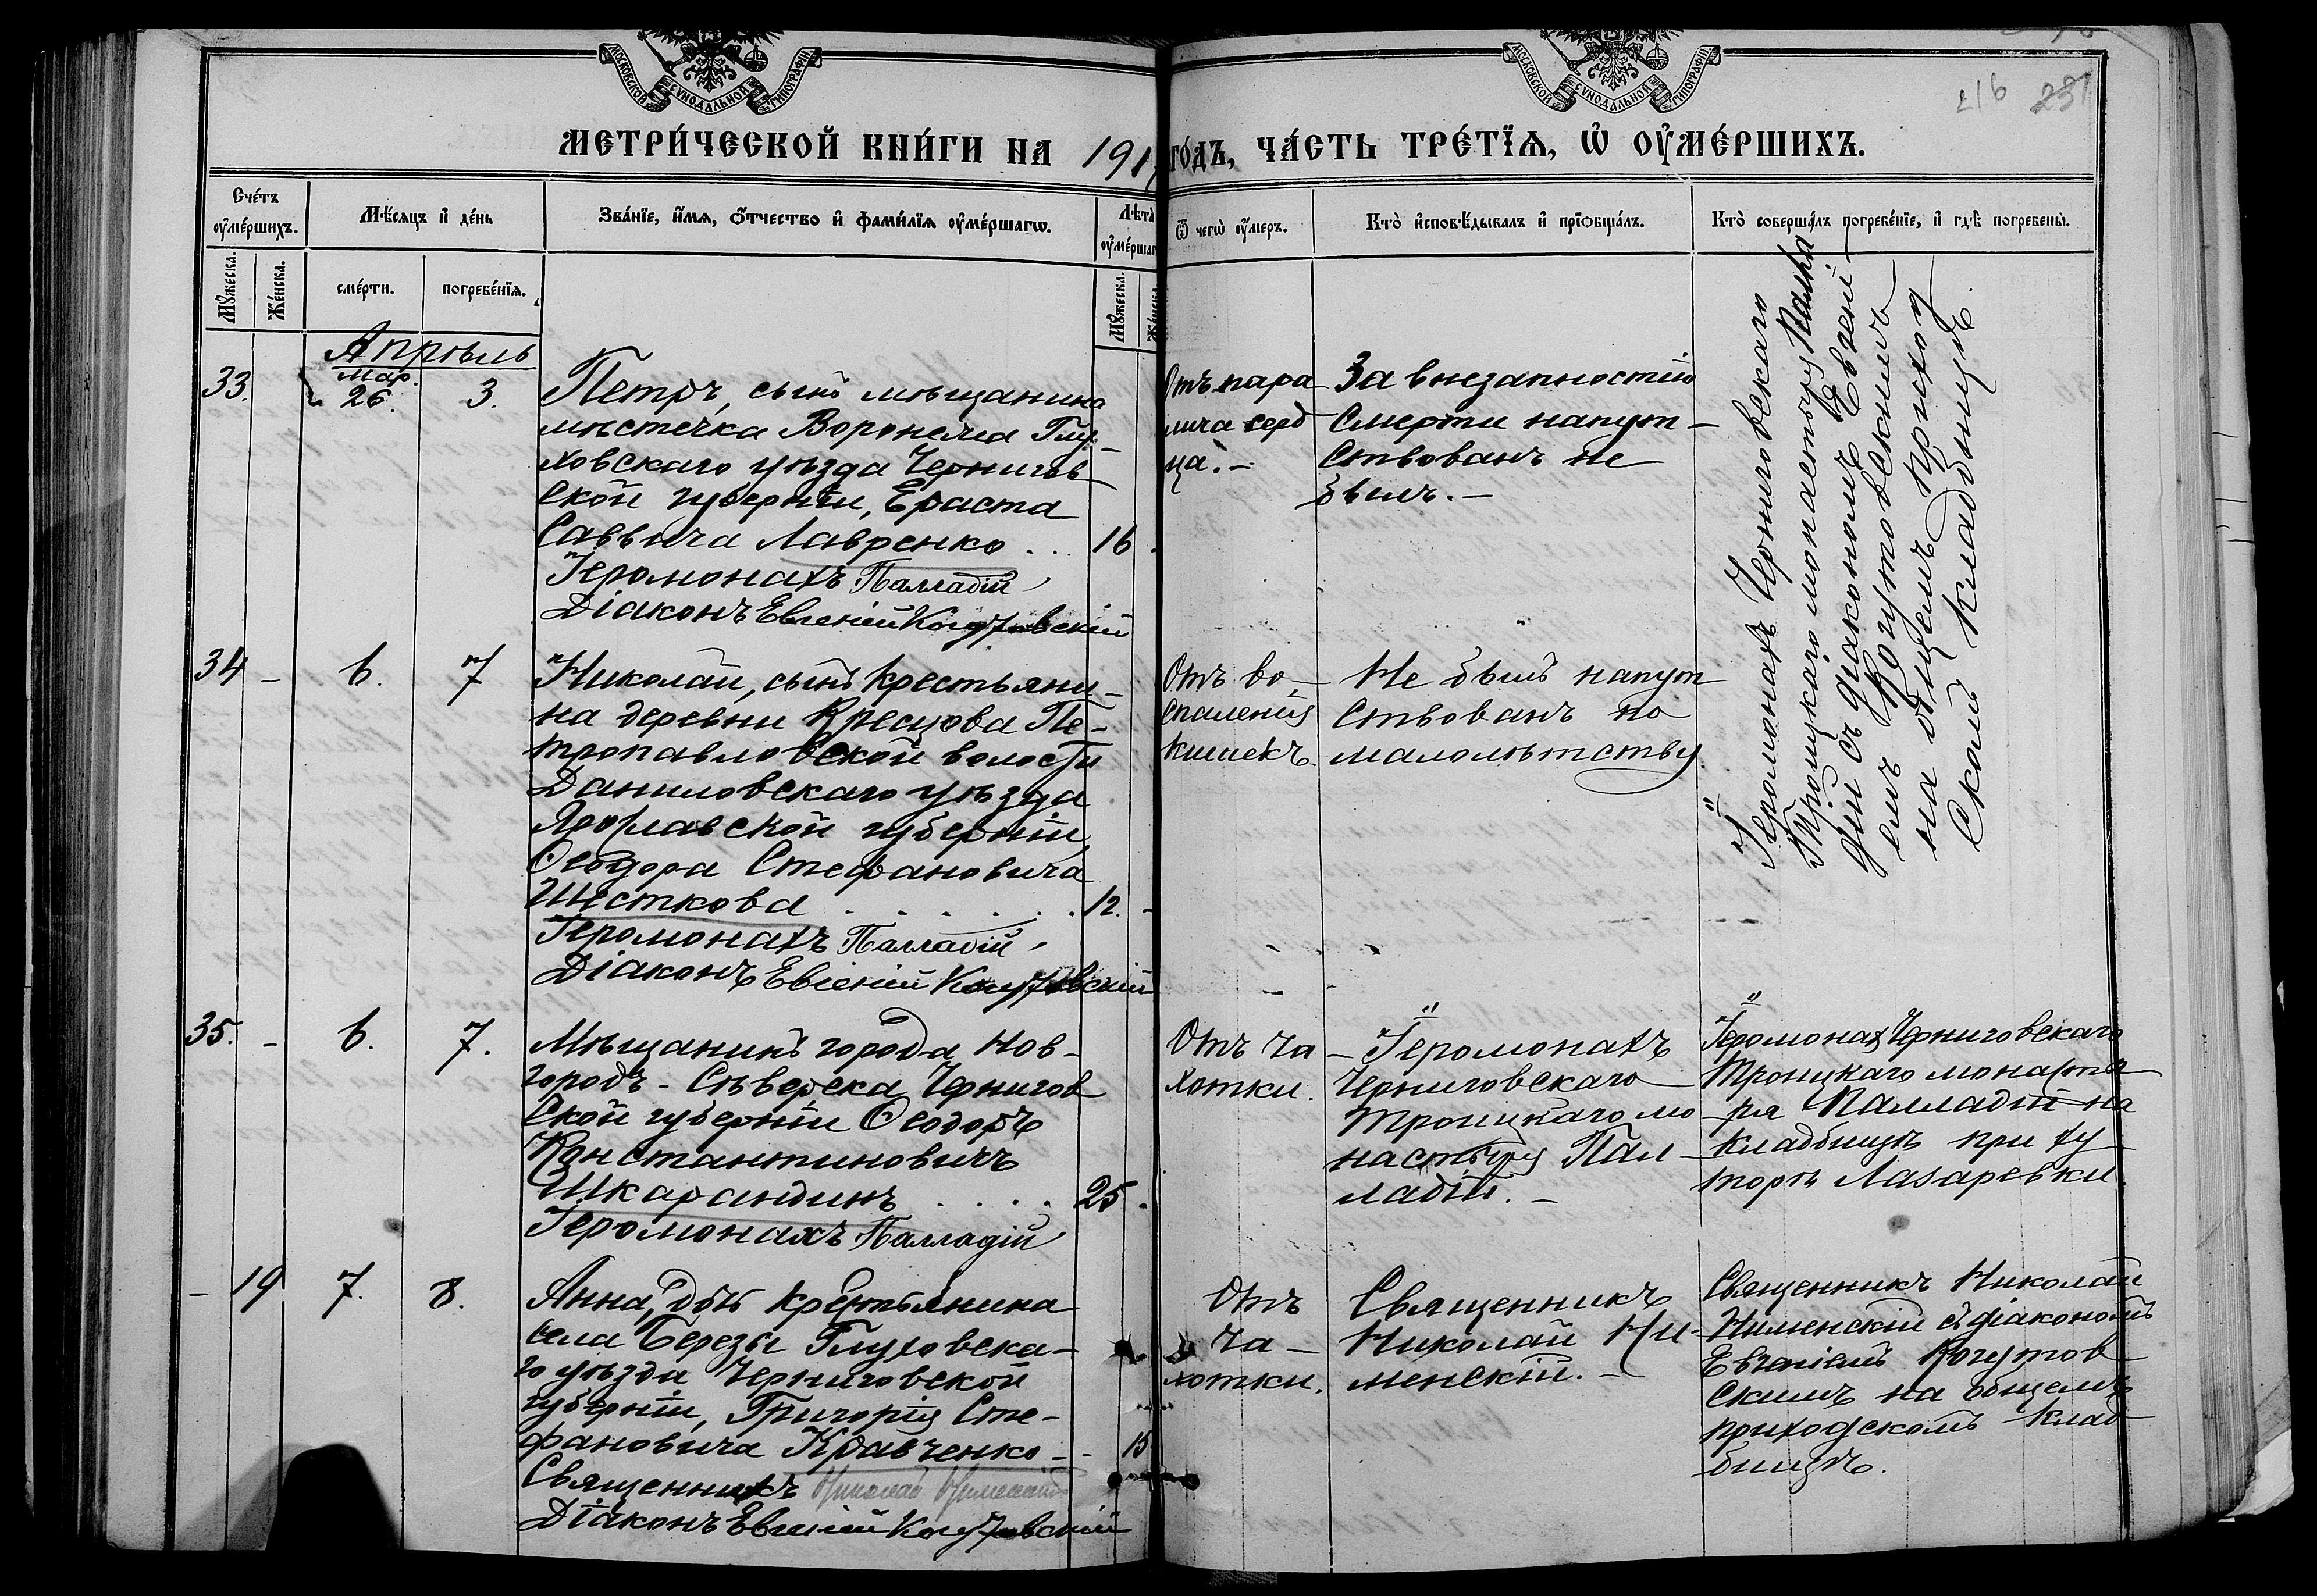 МОСКОВСКОЙ СѴНОДАЛЬНОЙ ТИПОГРАФІИ
МОСКОВСКОЙ СѴНОДАЛЬНОЙ ТИПОГРАФІИ
216 231
МЕТРИ́ЧЕСКОЙ КНИ́ГИ НА 191
ГО́ДЪ, ЧА́СТЬ ТРЕ́ТЇѦ, Ѡ҆ ОУ҆МЕ́РШИХЪ.
Сче́тъ оу҆ме́ршихъ.
Мѣ́сяцъ и҆ де́нь
Зва́нїе, и҆́мя, ѻ҆́тчество и҆ фами́лїя оу҆ме́ршагѡ.
Лѣ́та оу҆ме́ршаг
Ѿ чегѡ̀ оу҆́меръ.
Кто̀ и҆сповѣ́дывалъ и҆ прїѡбща́лъ.
Кто̀ соверша́лъ погребе́нїе, и҆ гдѣ̀ погребены̀.
Мꙋ́жеска.
Же́нска.
сме́рти.
погребе́нїя.
Мꙋ́жеска.
Же́нска
Апрѣль
33.
Мар. 26.
3.
Петръ, сынъ мѣщанина
мѣстечка Воронежа Глу-
ховскаго уѣзда Чернигов-
ской губерніи, Ераста
Саввича Лавренко . . . 16
Іеромонахъ Палладій
Діаконъ Евгеній Когутовскій
Отъ пара
лича серд
ца. –
За внезапностію
смерти напут-
ствованъ не
былъ. –
Іеромонахъ Черниговскаго
Троицкаго монастыря Палла
дій съ діакономъ Евгені-
емъ Когутовскимъ
на общемъ приход
скомъ кладбищѣ.
34 –
6.
7
Николай, сынъ крестьяни-
на деревни Пе-
тропавловской волости
Даниловскаго уѣзда
Ярославской губерніи,
Ѳеодора Стефановича
Шесткова . . . . . . 12. –
Іеромонахъ Палладій
Діаконъ Евгеній Когутовскій
Отъ во-
спаленія
кишекъ.
Не былъ напут
ствованъ по
малолѣтству.
35. –
6.
7.
Мѣщанинъ города Нов-
городъ-Сѣверска Чернигов
ской губерніи Ѳеодоръ
Константиновичъ
Шкарандинъ . . . . 25.
Іеромонахъ Палладій
Отъ ча-
хотки.
Іеромонахъ
Черниговскаго
Троицкаго мо
настыря Пал-
ладій. –
Іеромонахъ Черниговскаго
Троицкаго монасты-
ря Палладій на
кладбищѣ при ху
торѣ Лазаревки.
– 19
7.
8.
Анна, дочь крестьянина
села Березы Глуховска-
го уѣзда Черниговской
губерніи, Григорія Сте-
фановича Кравченко – - 15
Священникъ Николай
Діаконъ Евгеній Когутовскій
Отъ
ча-
хотки.
Священникъ
Николай Ни-
менскій. –
Священникъ Николай
Нименскій съ діакономъ
Евгеніемъ Когутов
скимъ на общемъ
приходскомъ клад
бищѣ.